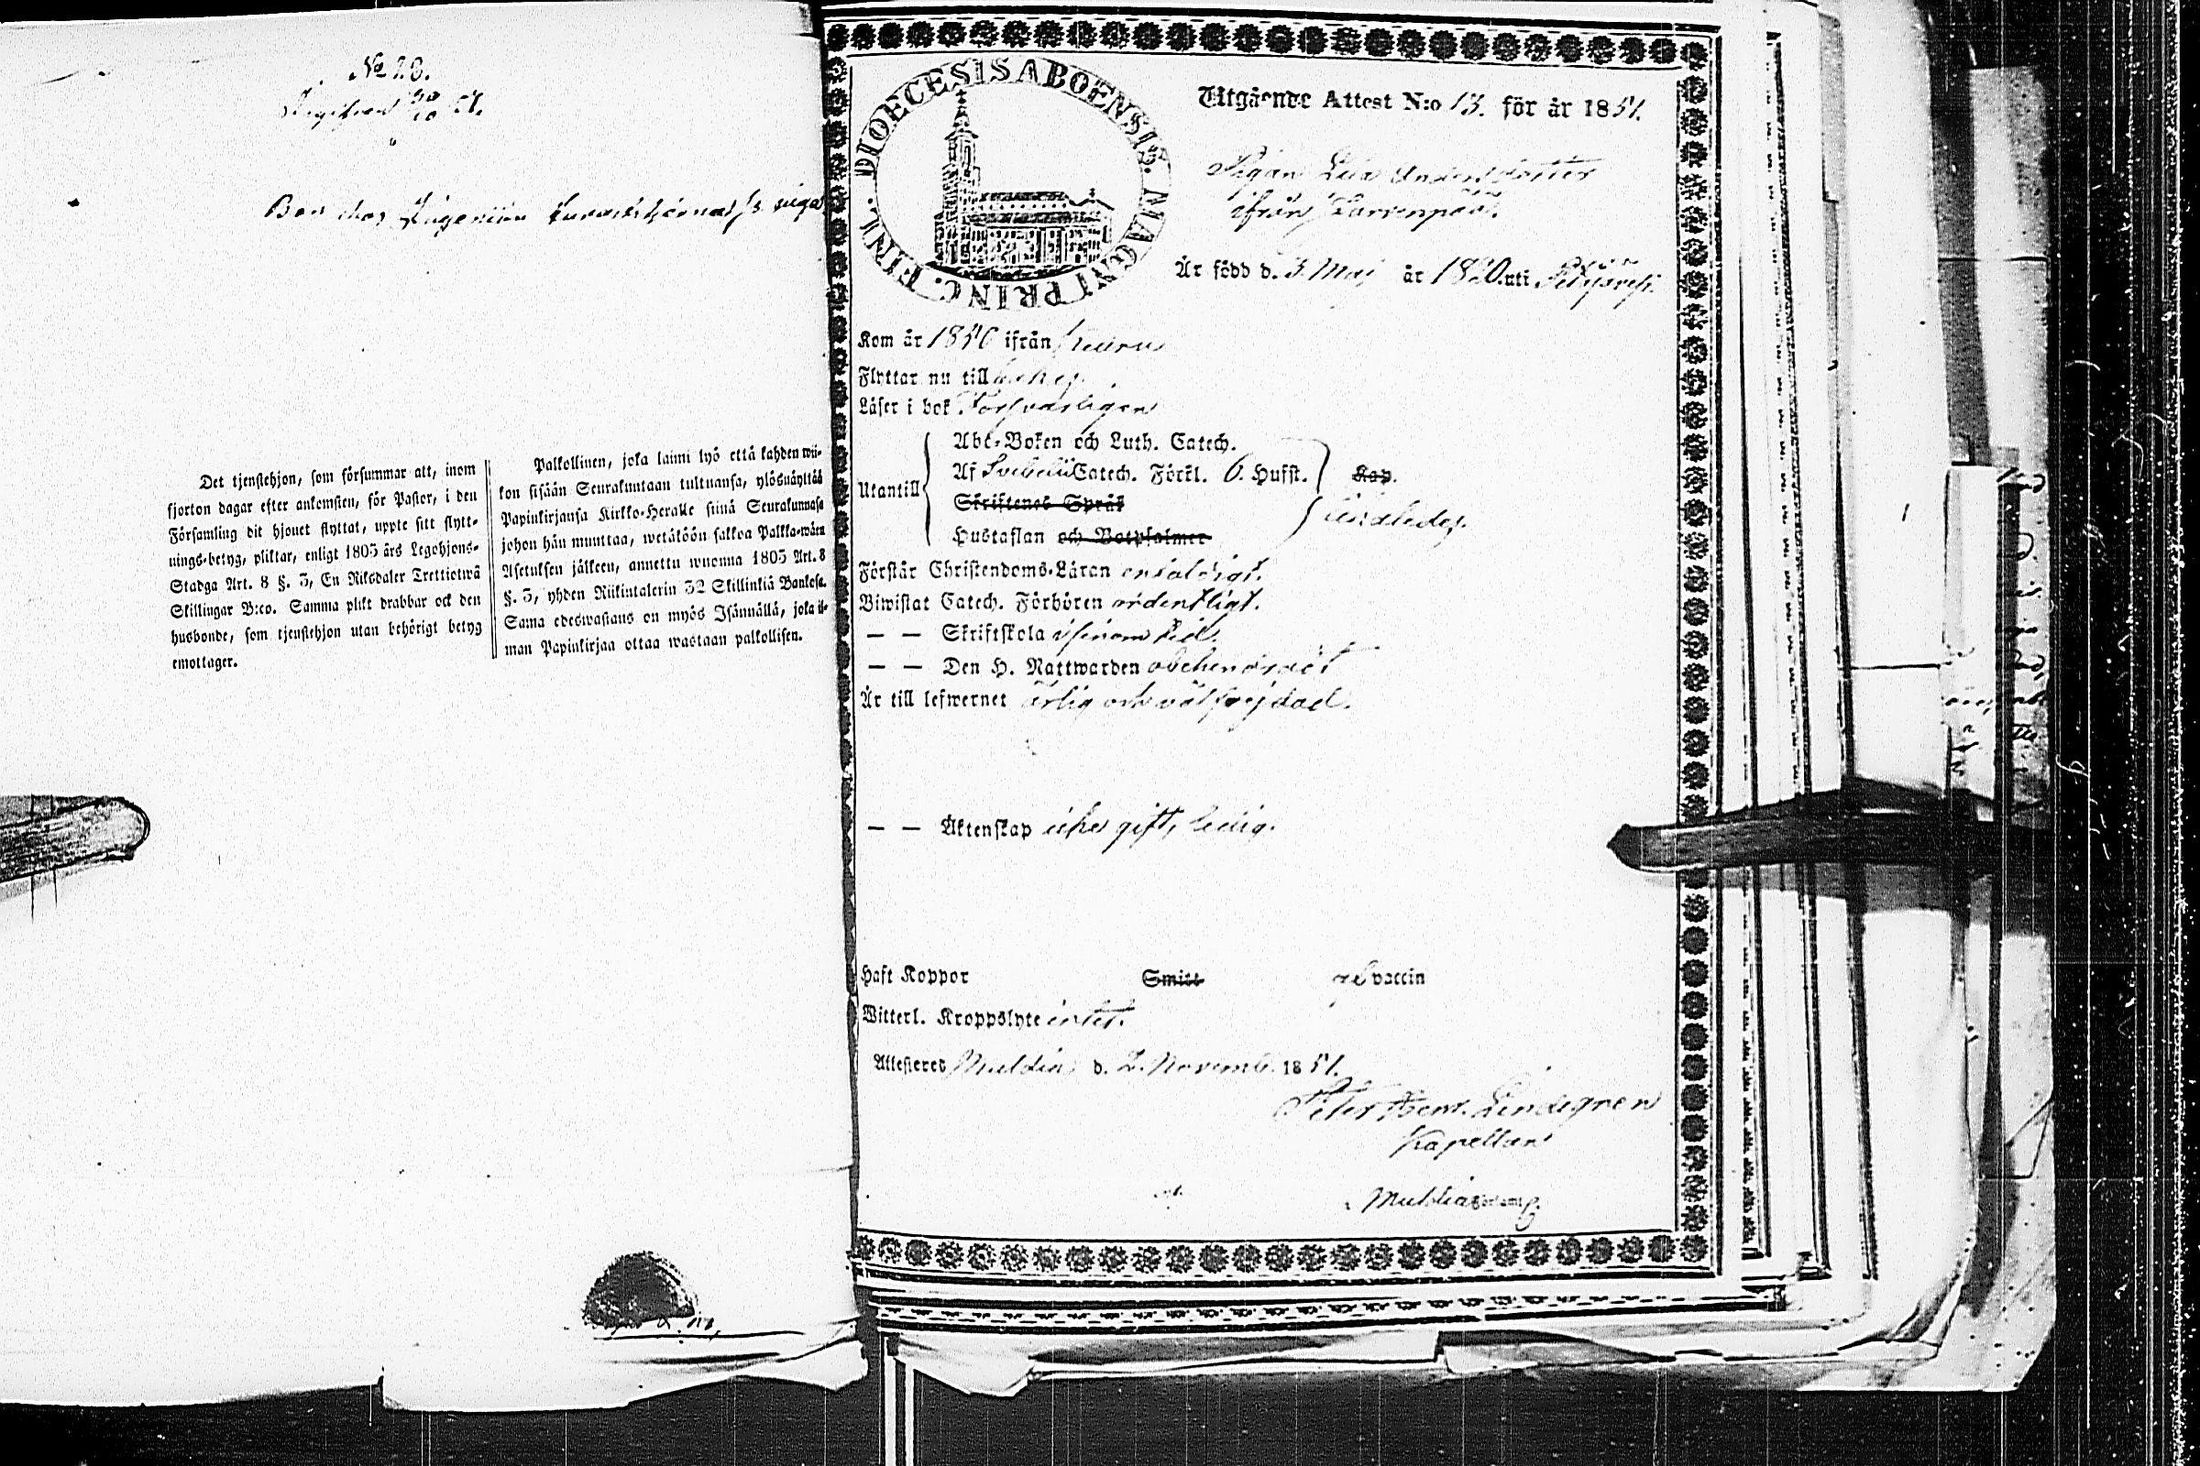 No 28.
Bor hos
Det tjenstehjon, som försummar att, inom
fjorton dagar efter ankomsten, för Pastor, i den
Församling dit hjonet flyttat, uppte sitt flytt-
nings-betyg, pliktar, enligt 1805 års Legohjons-
Stadga Art. 8 §. 5, En Riksdaler Trettiotwå
Skillingar B:co. Samma plikt drabbar ock den
husbonde, som tjenstehjon utan behörigt betyg
emottager.
Palkollinen, joka laimi lyö että kahden wii-
kon sisään Seurakuntaan tultuansa, ylösnäyttää
Papinkirjansa Kirkko-Heralle siinä Seurakunnasa
johon hän muuttaa, wetäköön sakkoa Palkka-wäen
Asetuksen jälkeen, annettu wuonna 1805 Art. 8
§. 5, yhden Riikintalerin 32 Skillinkiä Bankosa.
Sama edeswastaus on myös Isännällä, joka il-
man Papinkirjaa ottaa wastaan palkollisen.
DIOECESIS ABOENSIS. MAGNI PRINC. FINL.
Utgående Attest N:o 13. för år 1851.
Pigan Lisa Andersdotter
ifrån
Är född d. 3. Maj år 1820. uti Petäjävesi.
Kom år 1850 ifrån Keuru
Flyttar nu till
Läser i bok Försvarligen
Utantill
Abc-Boken och Luth. Catech.
Af Svebelii Catech. Förkl. 6. Hufst. Kap.
Skriftenes Språk
Hustaflan och Botpsalmer
Förstår Christendoms-Läran enfaldigt.
Biwistat Catech. Förhören ordentligt.
— — Skriftskola i sinom tid.
— — Den H. Nattwarden obehindradt
Är till lefwernet ärlig och välfrejdad.
— — Äktenskap icke gift, ledig.
Haft Koppor Smitt vaccin
Witterl. Kroppslyte intet.
Attesteres Muldia d. 2. Novemb. 1851.
Peter Lindegren
Kapellan
Muldia